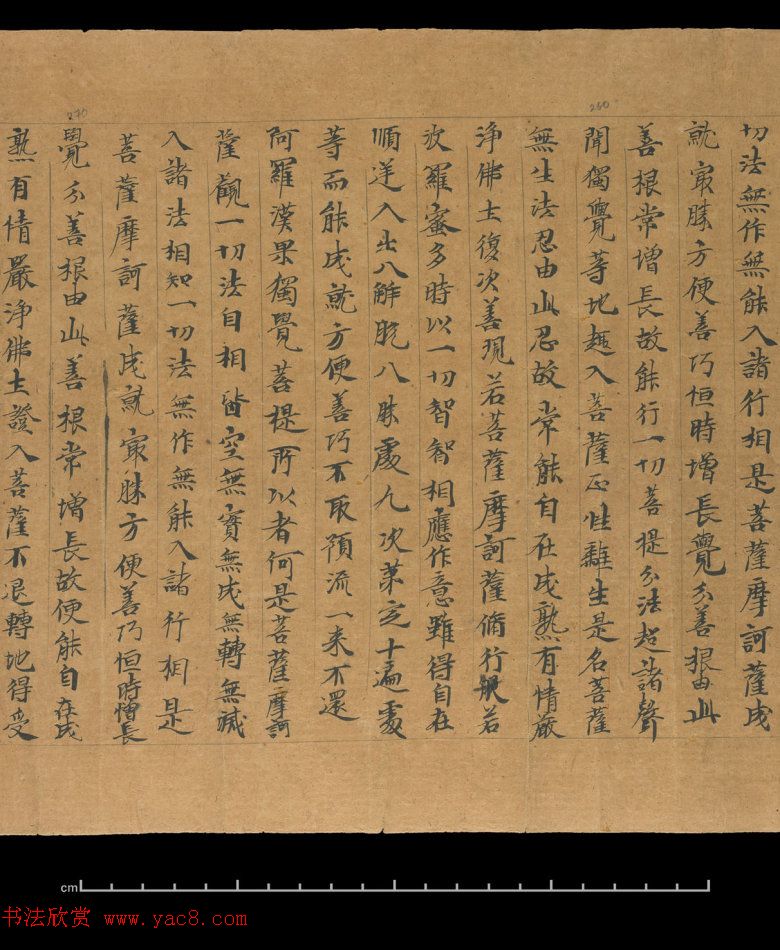 切法無作無能入諸行相是菩薩摩訶薩成
就最勝方便善巧恒時增長覺分善根由此
善根常增長故能行一切菩提分法超諸聲
聞獨覺等地趣入菩薩正性離生是名菩薩
無生法忍由此忍故常能自在成熟有情嚴
淨佛土復次善現若菩薩摩訶薩脩行般若
波羅蜜多時以一切智智相應作意雖得自在
順逆入出八解脫八勝處九次第定十遍處
等而能成就方便善巧不取預流一来不還
阿羅漢果獨覺菩提所以者何是菩薩摩訶
薩觀一切法自相皆空無實無成無轉無滅
入諸法相知一切法無作無能入諸行相是
菩薩摩訶薩成就最勝方便善巧恒時增長
覺分善根由此善根常增長故便能自在成
熟有情嚴淨佛土證入菩薩不退轉地得受
260
270
cm
书法欣赏 www.yac8.com